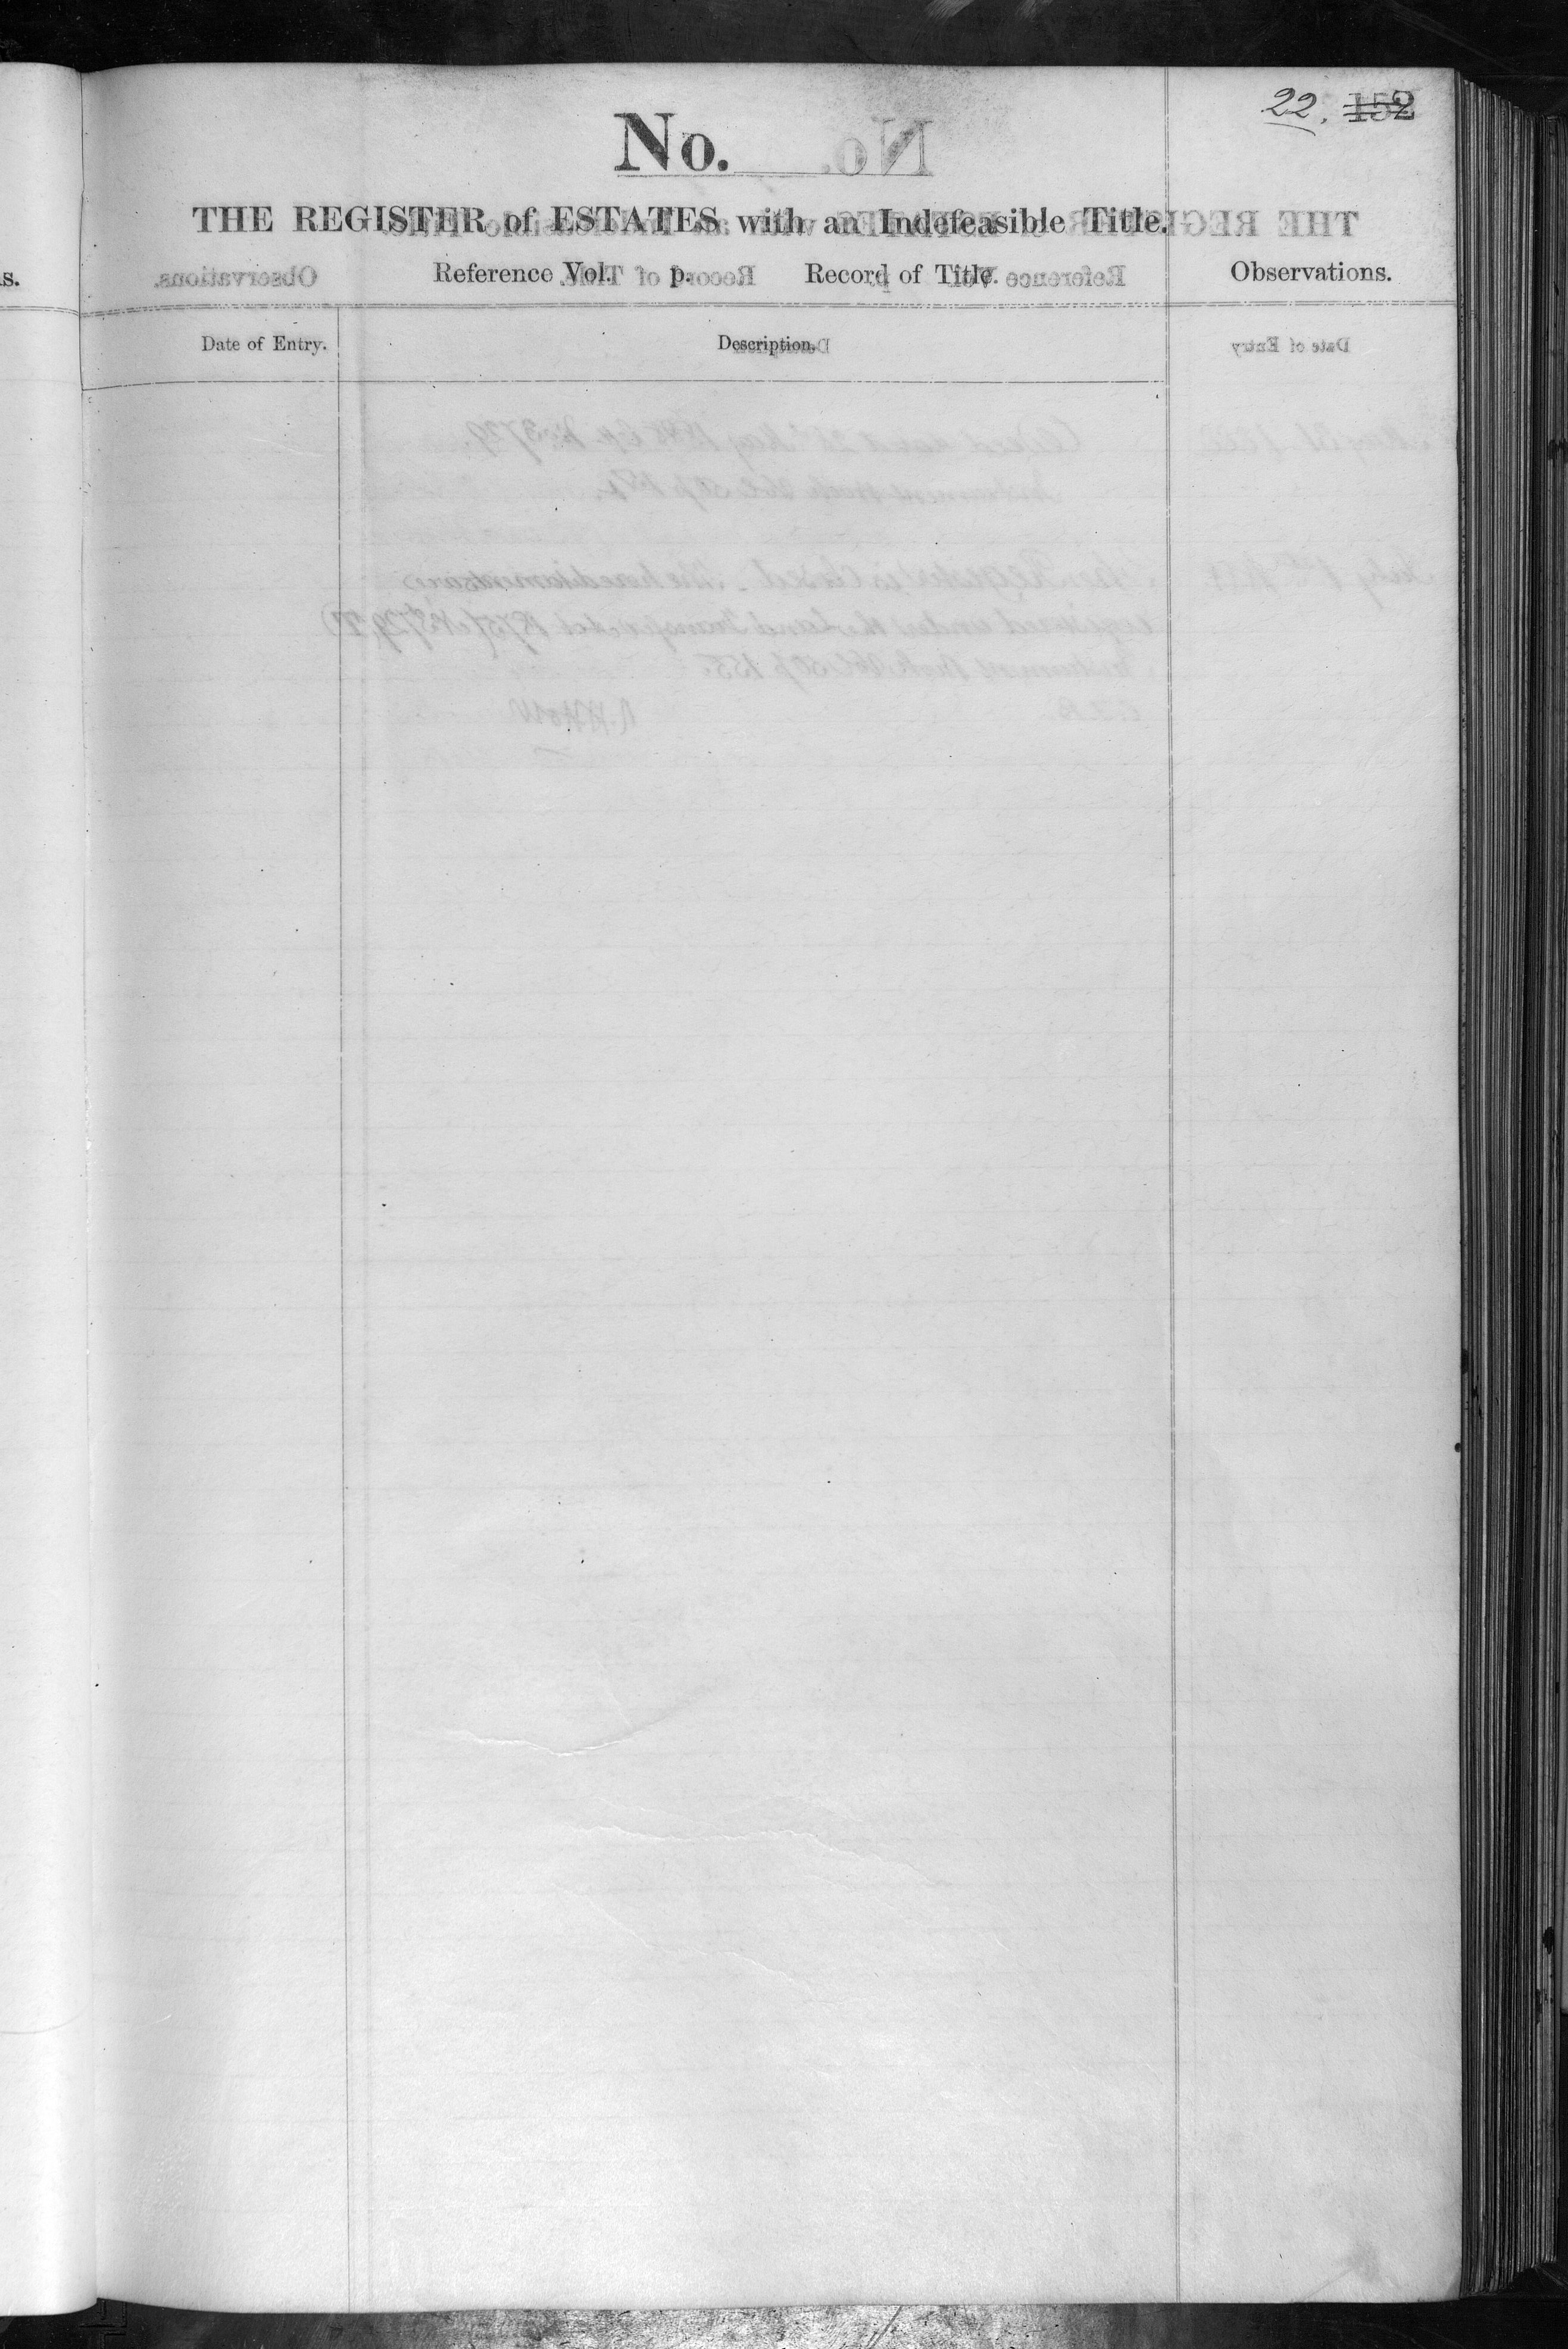 22. 152
No.
THE REGISTER of ESTATES with an Indefeasible Title.
s.
Reference Vol. p. Record of Title.
Observations.
Date of Entry.
Description.